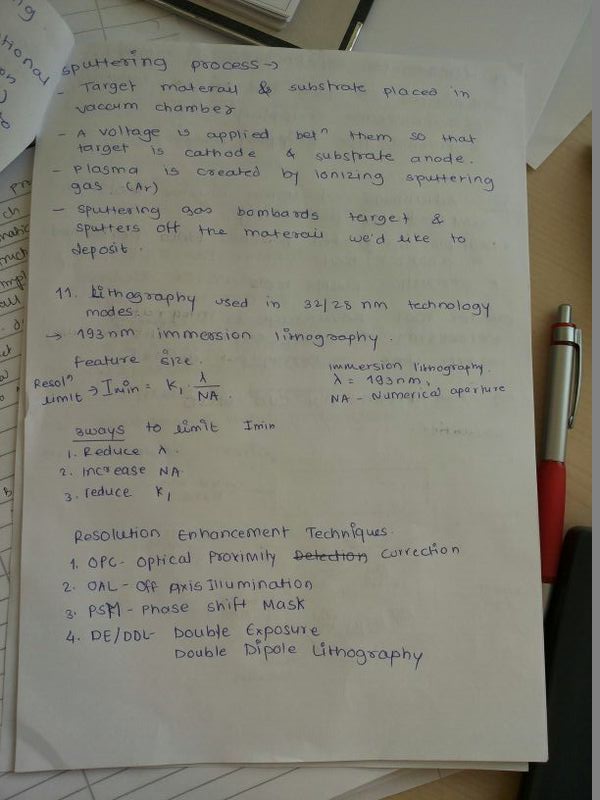 sputtering process →
- Target materail & substrate placed in
vaccum chamber
- A voltage is applied betⁿ them so that
target is cathode & substrate anode.
- Plasma is created by ionizing sputtering
gas (Ar)
- sputtering gas bombards target &
sputters off the materail we'd like to
deposit.
11. Lithography used in 32/28 nm technology
modes.
→ 193nm immersion lithography.
feature size.
immersion lithography.
Resolⁿ limit → Imin = K₁ λ/NA.
λ = 193nm,
NA - Numerical aparture
3ways to limit Imin
1. Reduce λ.
2. increase NA.
3. reduce K₁
Resolution Enhancement Techniques.
1. OPC- Optical Proximity Detection Correction
2. OAL - Off Axis Illumination
3. PSM - Phase shift Mask
4. DE/DDL- Double Exposure
Double Dipole Lithography